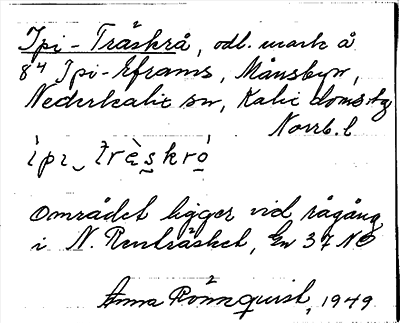 Ipi-Träskrå, odl. mark å
8⁴ Ipi-Eframs, Månsbyn,
Nederkalix sn, Kalix doms.tg
Norrb. l
ìpı‿ trὲskrò
Området ligger vid rågång
i N. Renträsket, Ek 37 NO
Anna Rönnquist, 1949